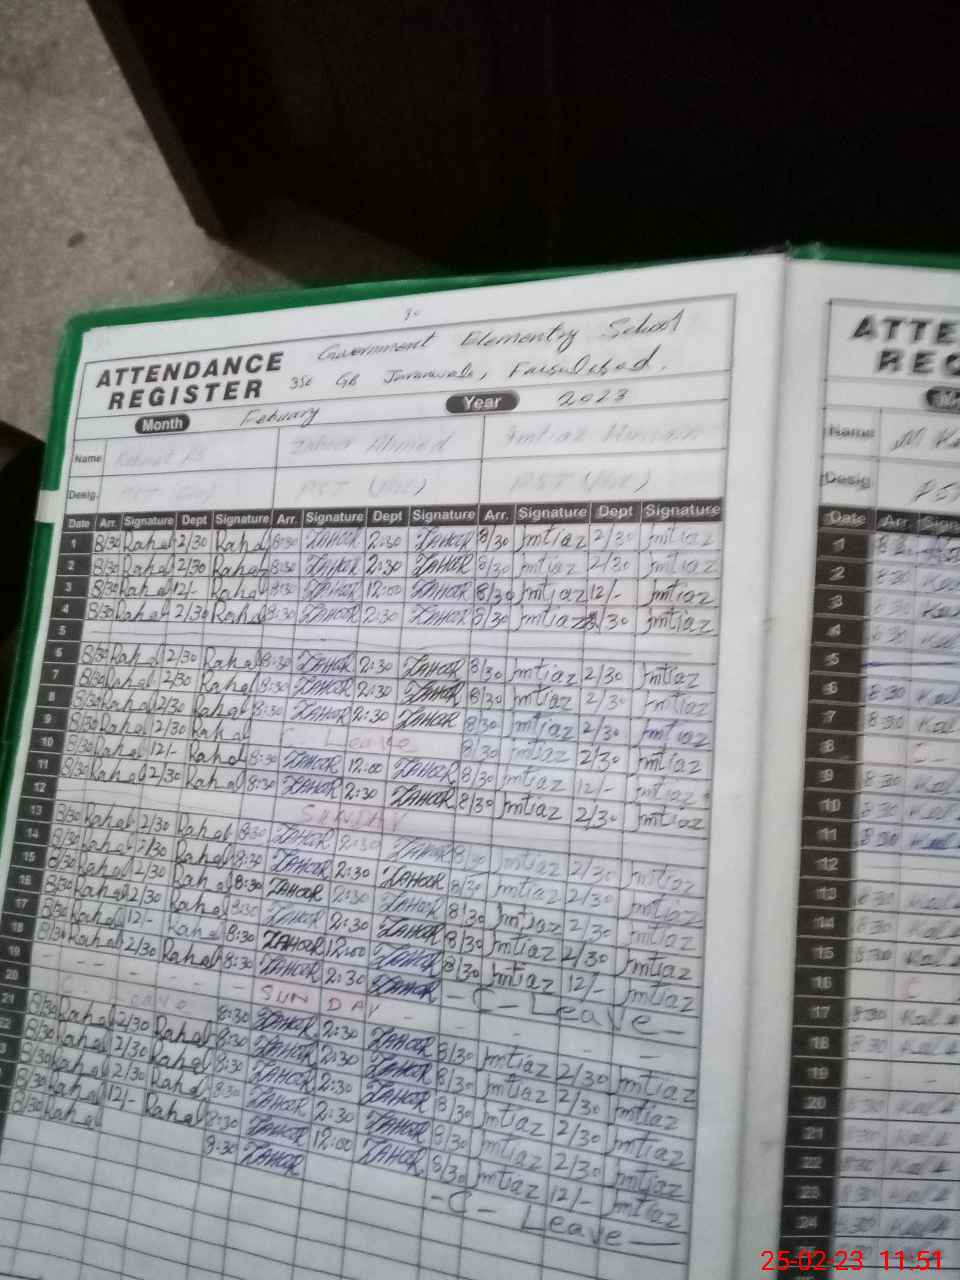 Government Elementry School
ATTENDANCE REGISTER 350 GB Jaranwala, Faisalabad.
Month Febuary Year 2023
Name Zahoor Ahmed Imtiaz Hussain
Desig. PST
Date Arr. Signature Dept Signature Arr. Signature Dept Signature Arr. Signature Dept Signature
1 8/30 Rahel 2/30 Rahel 8:30 ZAHOOR 2:30 ZAHOOR 8/30 Imtiaz 2/30 Imtiaz
2 8/30 Rahel 2/30 Rahel 8:30 ZAHOOR 2:30 ZAHOOR 8/30 Imtiaz 2/30 Imtiaz
3 8/30 Rahel 12/- Rahel 8:30 ZAHOOR 12:00 ZAHOOR 8/30 Imtiaz 12/- Imtiaz
4 8/30 Rahel 2/30 Rahel 8:30 ZAHOOR 2:30 ZAHOOR 8/30 Imtiaz 2/30 Imtiaz
5
6 8/30 Rahel 2/30 Rahel 8:30 ZAHOOR 2:30 ZAHOOR 8/30 Imtiaz 2/30 Imtiaz
7 8/30 Rahel 2/30 Rahel 8:30 ZAHOOR 2:30 ZAHOOR 8/30 Imtiaz 2/30 Imtiaz
8 8/30 Rahel 2/30 Rahel 8:30 ZAHOOR 2:30 ZAHOOR 8/30 Imtiaz 2/30 Imtiaz
9 8/30 Rahel 2/30 Rahel C Leave 8/30 Imtiaz 2/30 Imtiaz
10 8/30 Rahel 12/- Rahel 8:30 ZAHOOR 12:00 ZAHOOR 8/30 Imtiaz 12/- Imtiaz
11 8/30 Rahel 2/30 Rahel 8:30 ZAHOOR 2:30 ZAHOOR 8/30 Imtiaz 2/30 Imtiaz
12 SUNDAY
13 8/30 Rahel 2/30 Rahel 8:30 ZAHOOR 2:30 ZAHOOR 8/30 Imtiaz 2/30 Imtiaz
14 8/30 Rahel 2/30 Rahel 8:30 ZAHOOR 2:30 ZAHOOR 8/30 Imtiaz 2/30 Imtiaz
15 8/30 Rahel 2/30 Rahel 8:30 ZAHOOR 2:30 ZAHOOR 8/30 Imtiaz 2/30 Imtiaz
16 8/30 Rahel 2/30 Rahel 8:30 ZAHOOR 2:30 ZAHOOR 8/30 Imtiaz 2/30 Imtiaz
17 8/30 Rahel 12/- Rahel 8:30 ZAHOOR 12:00 ZAHOOR 8/30 Imtiaz 12/- Imtiaz
18 8/30 Rahel 2/30 Rahel 8:30 ZAHOOR 2:30 ZAHOOR - C - Leave -
19 - - - - - SUNDAY - - - - -
20 C Leave 8:30 ZAHOOR 2:30 ZAHOOR 8/30 Imtiaz 2/30 Imtiaz
21 8/30 Rahel 2/30 Rahel 8:30 ZAHOOR 2:30 ZAHOOR 8/30 Imtiaz 2/30 Imtiaz
22 8/30 Rahel 2/30 Rahel 8:30 ZAHOOR 2:30 ZAHOOR 8/30 Imtiaz 2/30 Imtiaz
8/30 Rahel 2/30 Rahel 8:30 ZAHOOR 2:30 ZAHOOR 8/30 Imtiaz 2/30 Imtiaz
8/30 Rahel 12/- Rahel 8:30 ZAHOOR 12:00 ZAHOOR 8/30 Imtiaz 12/- Imtiaz
8/30 Rahel 8:30 ZAHOOR - C - Leave -
ATTE
REG
Name M
Desig.
Date Arr.
1
2 8:30
3 8:30
4 8:30
5
6 8:30
7 8:30
8
9 8:30
10 8:30
11 8:30
12
13 8:30
14 8:30
15 8:30
16 C
17 8:30
18 8:30
19 - -
20 8:30
21 8:30
22 8:30
23 8:30
24 8:30
25-02-23 11.51